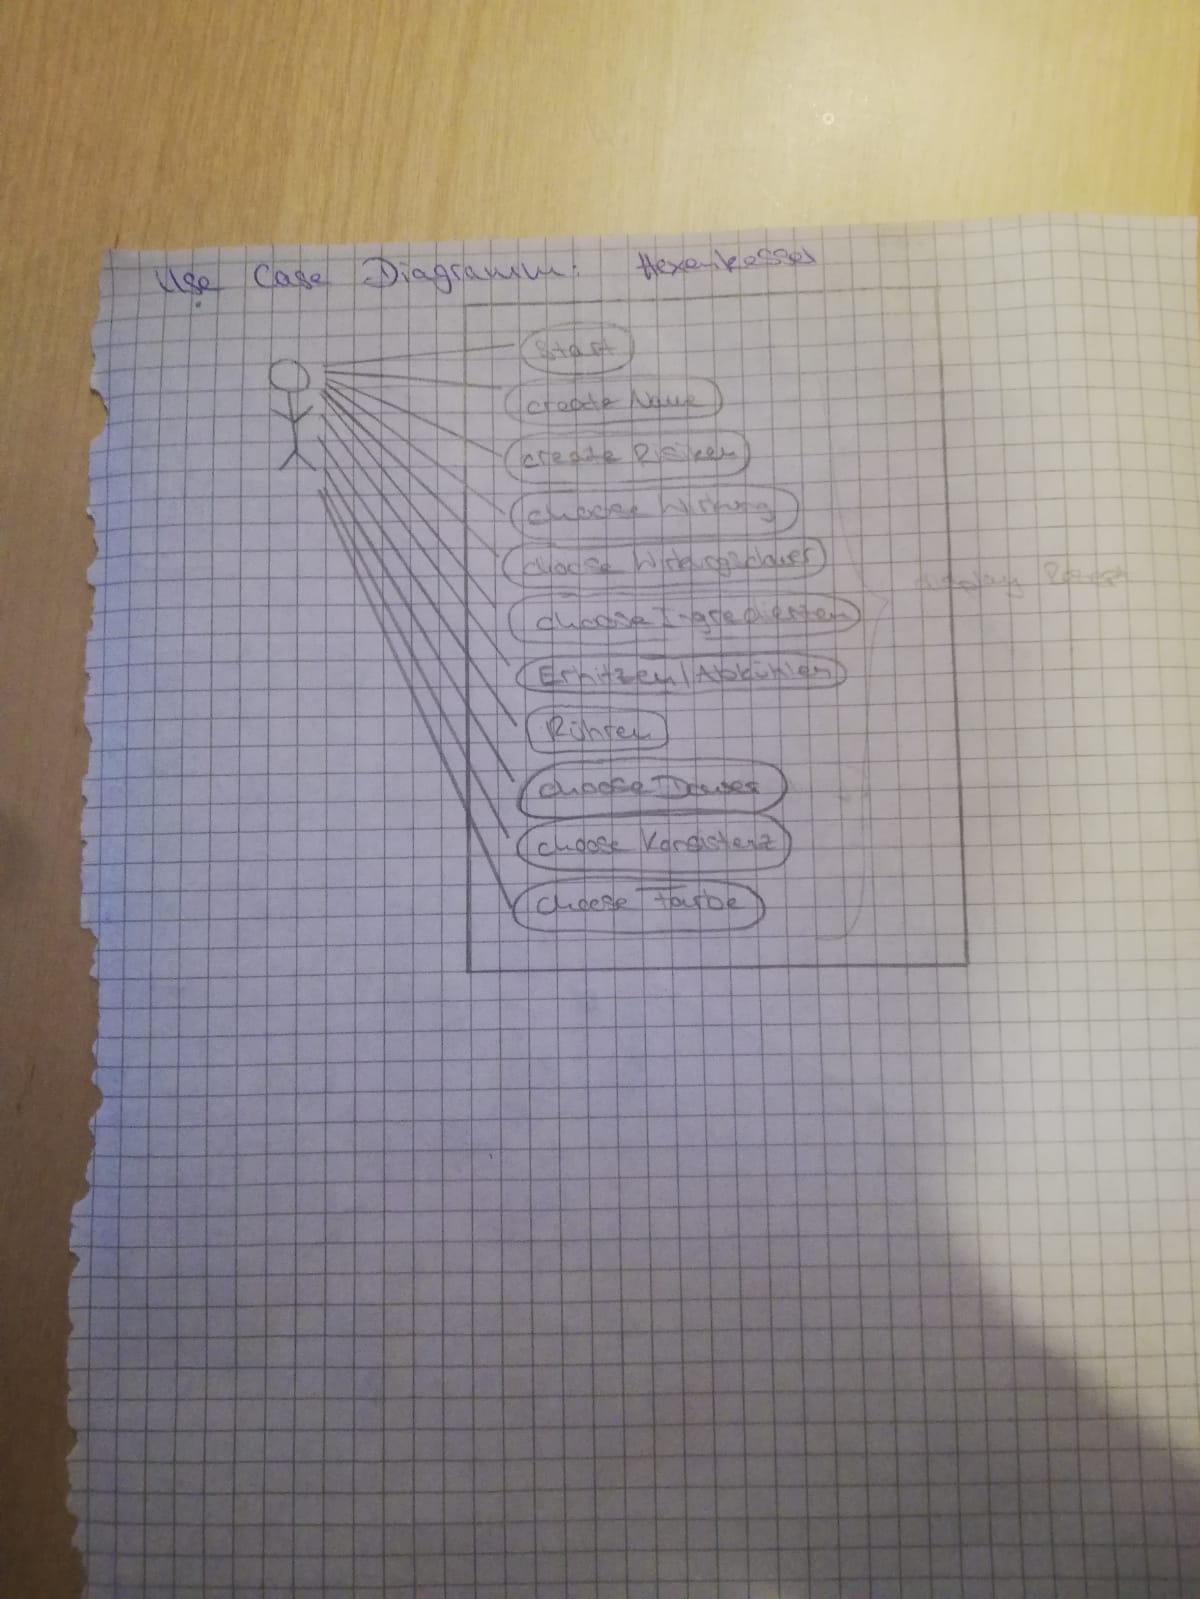 Use Case Diagramm: Hexenkessel
Start
create Name
create Risiken
choose Wirkung
choose Wirkungsdauer
display
choose Ingredienten
Erhitzen/Abkühlen
Rühren
choose Dauer
choose Konsistenz
choose Farbe